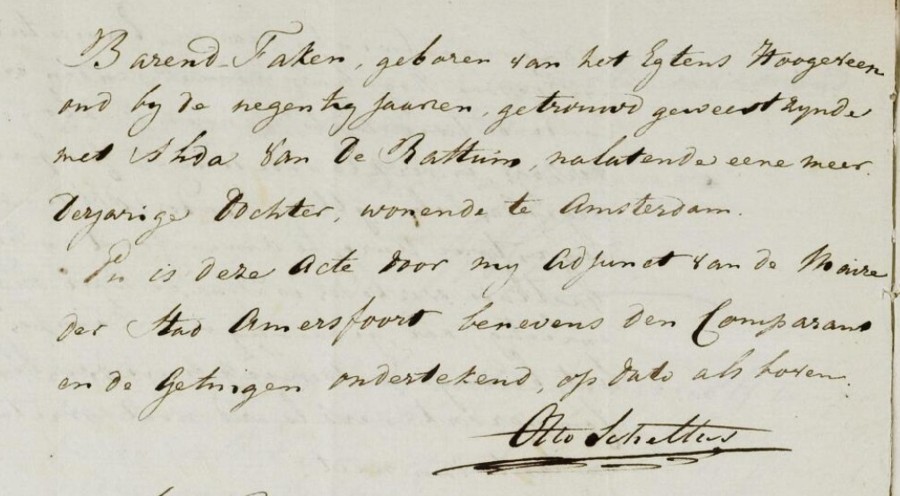 Barend Faken, geboren van het Egtens Hoogeveen
oud by de negentig jaaren, getrouwd geweest zynde
met Alida van De Rattuin, nalatende eene meer-
derjarige dochter, wonende te Amsterdam.
En is deze Acte door my Adjunct van de Maire
der Stad Amersfoort benevens den Comparant
en de Getuigen ondertekend, op dato als boven.
Otto Scheltus